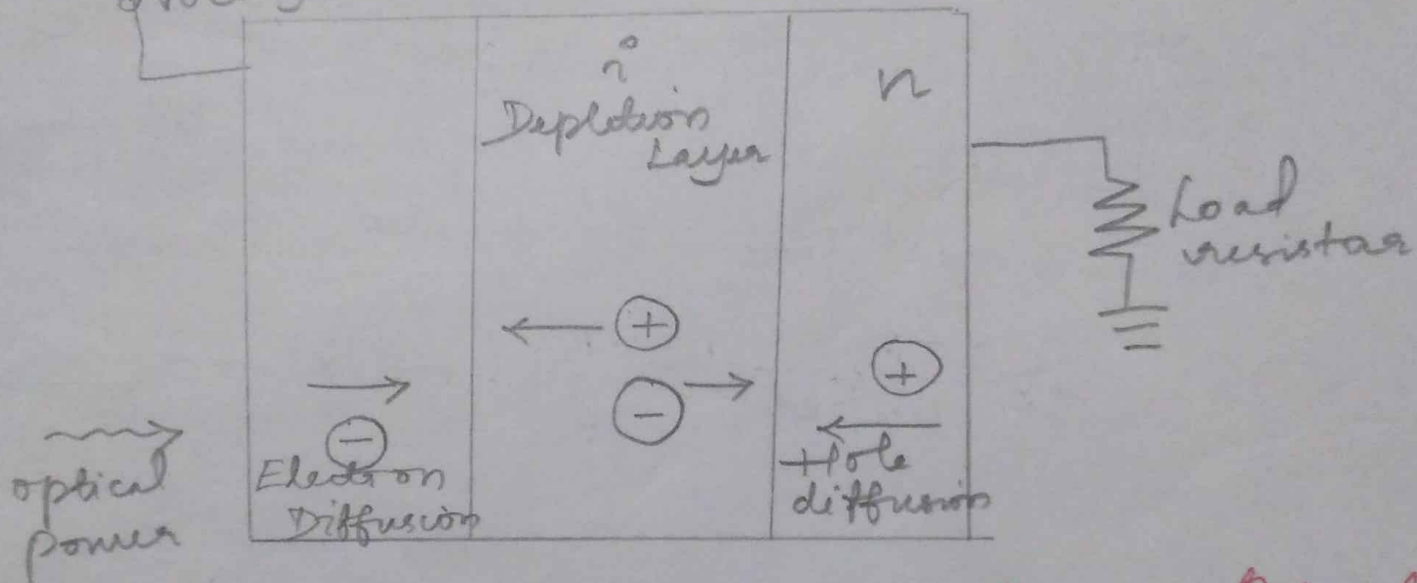 i
Depletion
Layer
n
Load
resistor
+
-
+
-
optical
power
Electron
Diffusion
Hole
diffusion